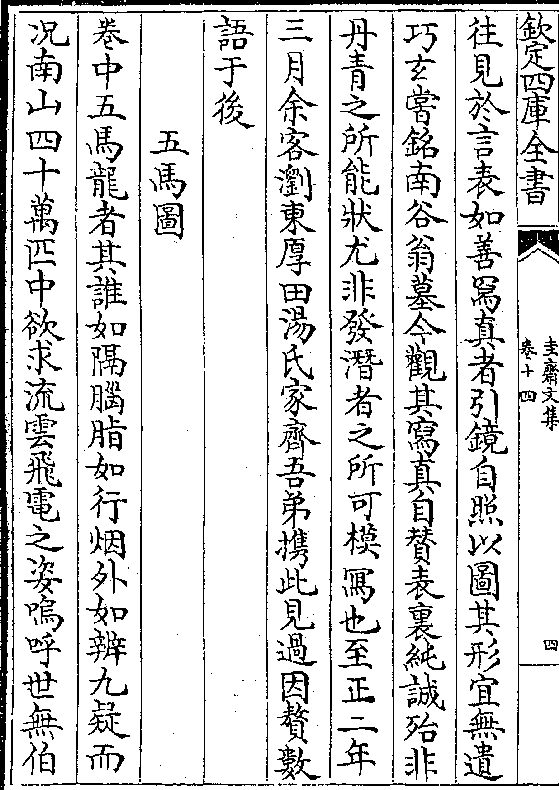 欽定四庫全書
圭齋文集
卷十四
四
往見於言表如善寫真者引鏡自照以圖其形宜無遺
巧玄嘗銘南谷翁墓今觀其寫真自賛表裏純誠殆非
丹青之所能狀尤非發潛者之所可模寫也至正二年
三月余客瀏東厚田湯氏家齊吾弟攜此見過因贅數
語于後
五馬圖
卷中五馬龍者其誰如隔腦脂如行烟外如辨九疑而
况南山四十萬匹中欲求流雲飛電之姿嗚呼世無伯